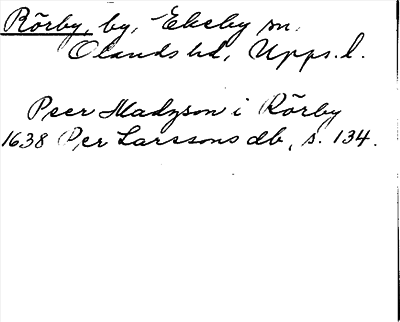 Rörby, by, Ekeby sn.
Olands hd, Upps. l.
Peer Madzson i Rörby
1638 Per Larssons db, s. 134.